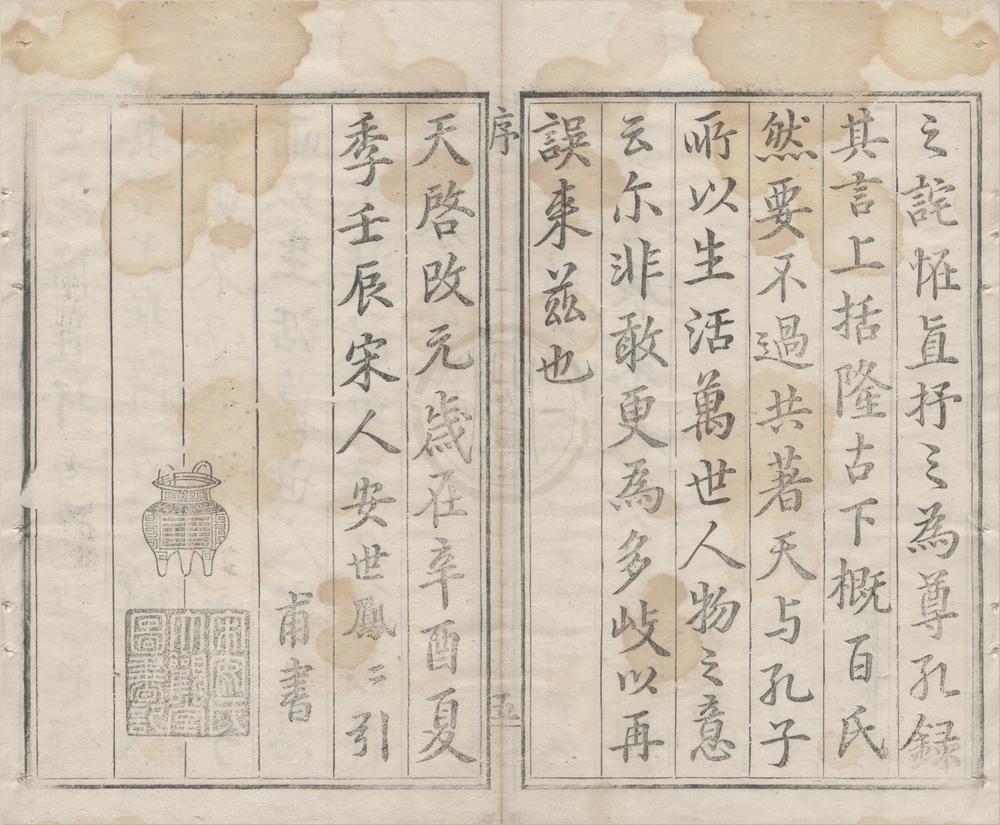 之詫惟眞抒之為尊孔録
其言上括隆古下概百氏
然要不過共著天与孔子
所以生活萬世人物之意
云尔非敢更為多岐以再
誤来兹也
序
五
天啓改元歲在辛酉夏
季壬辰宋人安世鳳二引
甫書